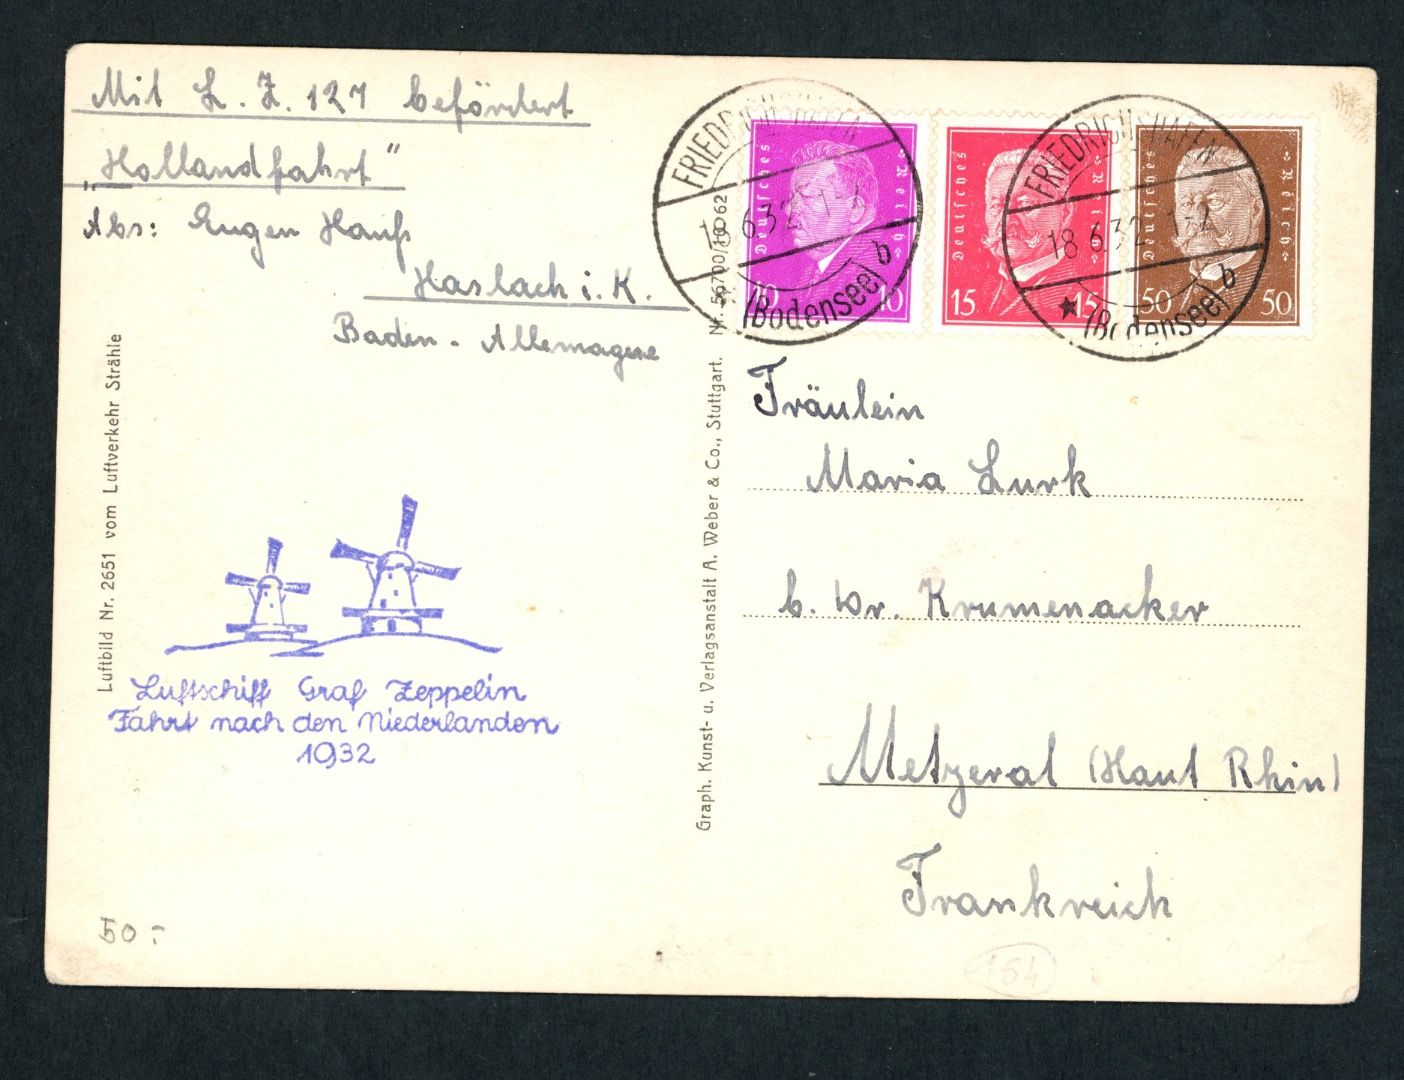 Mit L. Z. 127 befördert
„Hollandfahrt"
Abs: Eugen Hauß
Haslach i. K.
Baden - Allemagne
Luftbild Nr. 2651 vom Luftverkehr Strähle
Luftschiff Graf Zeppelin
Fahrt nach den Niederlanden
1932
50.-
Graph. Kunst- u. Verlagsanstalt A. Weber & Co., Stuttgart. Nr. 56700/
FRIEDRICHSHAFEN
18 6.32
b
(Bodensee)
Deutsches Reich
10 10
Deutsches Reich
15 15
Deutsches Reich
50 50
FRIEDRICHSHAFEN
18 6.32 1-2
b
(Bodensee)
Fräulein
Maria Lurk
b. Dr. Krumenacker
Metzeral (Haut Rhin)
Frankreich
164